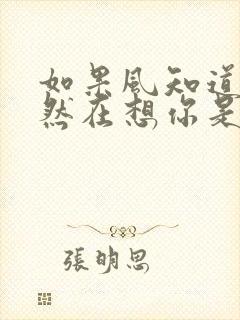 如果風知道
然在想你是
張明思